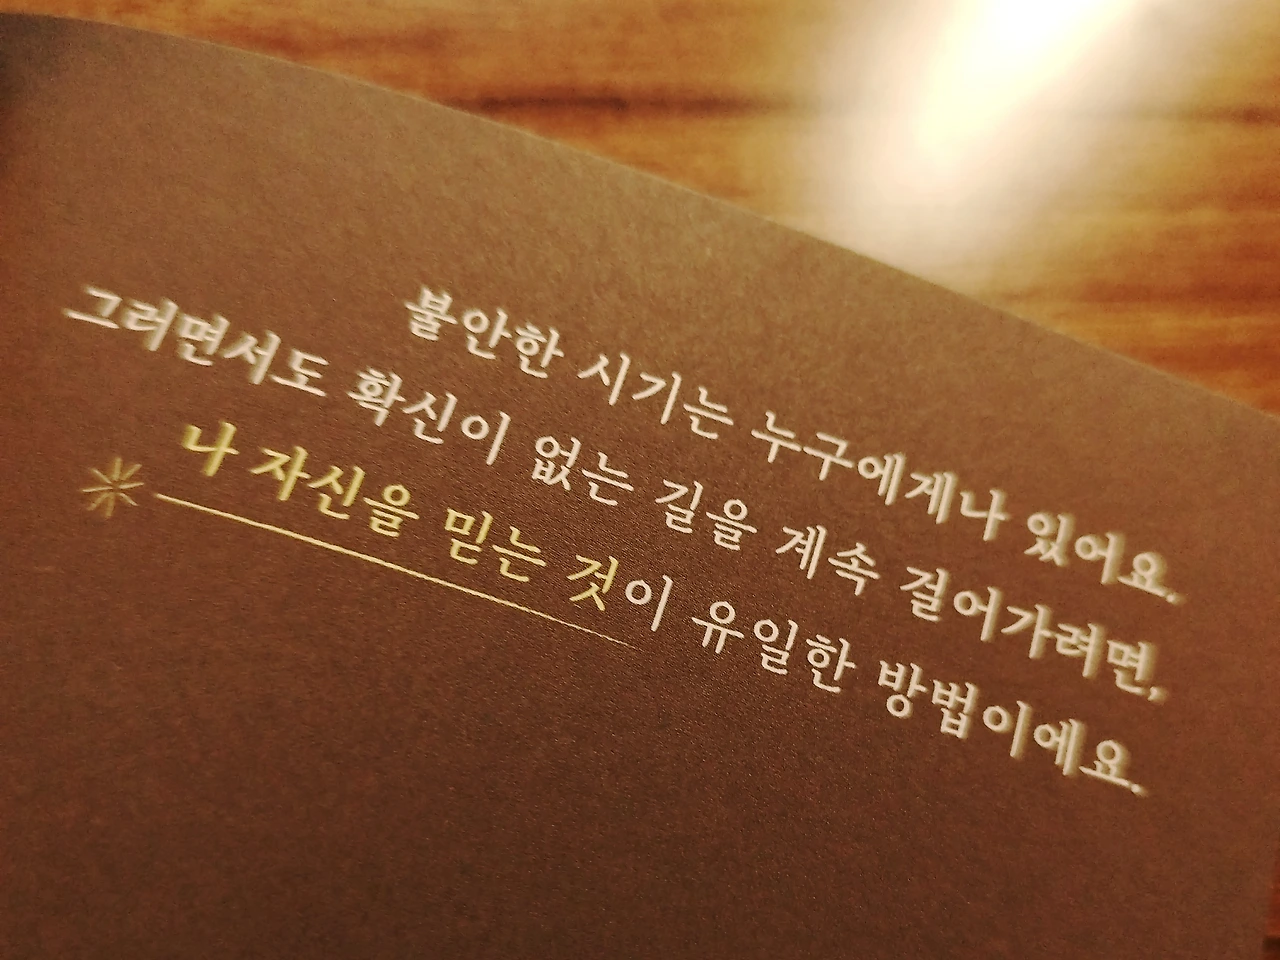 불안한 시기는 누구에게나 있어요.
그러면서도 확신이 없는 길을 계속 걸어가려면,
나 자신을 믿는 것이 유일한 방법이에요.